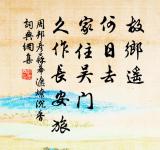 故鄉遙
何日去
家住吳門
久作長安旅
周邦彥蘇幕遮燎沉香
詞典網集